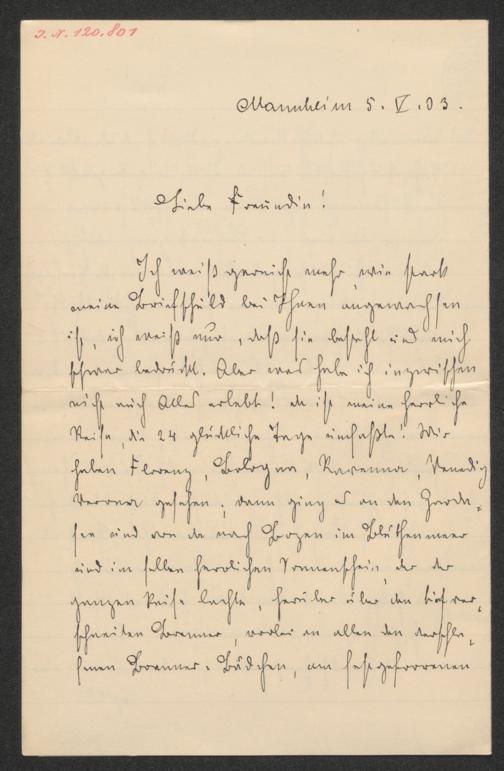 J. N. 120.801
Mannheim 5. V. 03.
Liebe Freundin!
Ich weiß garnicht mehr, wie stark
meine Briefschuld bei Ihnen angewachsen
ist, ich weiß nur, daß sie besteht und mich
schwer bedrückt. Aber was habe ich inzwischen
nicht auch Alles erlebt! da ist meine herrliche
Reise, die 24 glückliche Tage umfaßte. Wir
haben Florenz, Bologna, Ravenna, Venedig
Verona gesehen, dann ging es an den Garda-
see und von da nach Bozen im Blüthenmeer
und im selben herrlichen Sonnenschein, der der
ganzen Reise lachte, herüber über den tief ver-
schneiten Brenner, vorbei an allen den
Brenner-Bädchen, am festgefrorenen